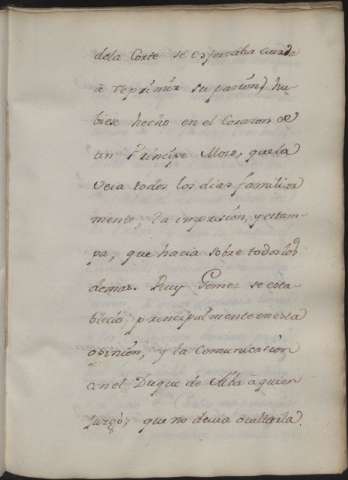 dela Corte se esforzaba cuando
à reprimir su pasion) hu-
biese hecho en el Corazon de
un Principe Mozo, que la
veia todos los dias familiar
mente, la impresion, y estam-
pa, que hacia sobre todos los
demas. Ruy Gomez se esta-
bleció principalmente en esta
opinion, y la Comunicacion
con el Duque de Alba à quien
juzgò, que no devia ocultarla.